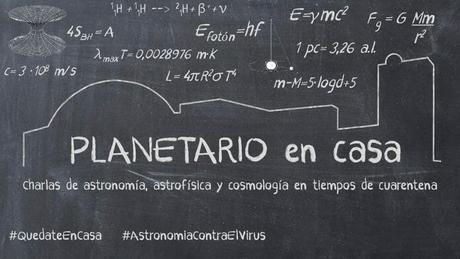 ¹₁H + ¹₁H --> ²₁H + β⁺ + ν
4S_BH = A
E_fotón = hf
E = γmc²
F_g = G Mm/r²
λ_max T = 0,0028976 m·K
1 pc = 3,26 a.l.
c = 3 · 10⁸ m/s
L = 4πR²σT⁴
m-M=5·logd+5
PLANETARIO en casa
Charlas de astronomía, astrofísica y cosmología en tiempos de cuarentena
#QuedateEnCasa #AstronomiaContraElVirus